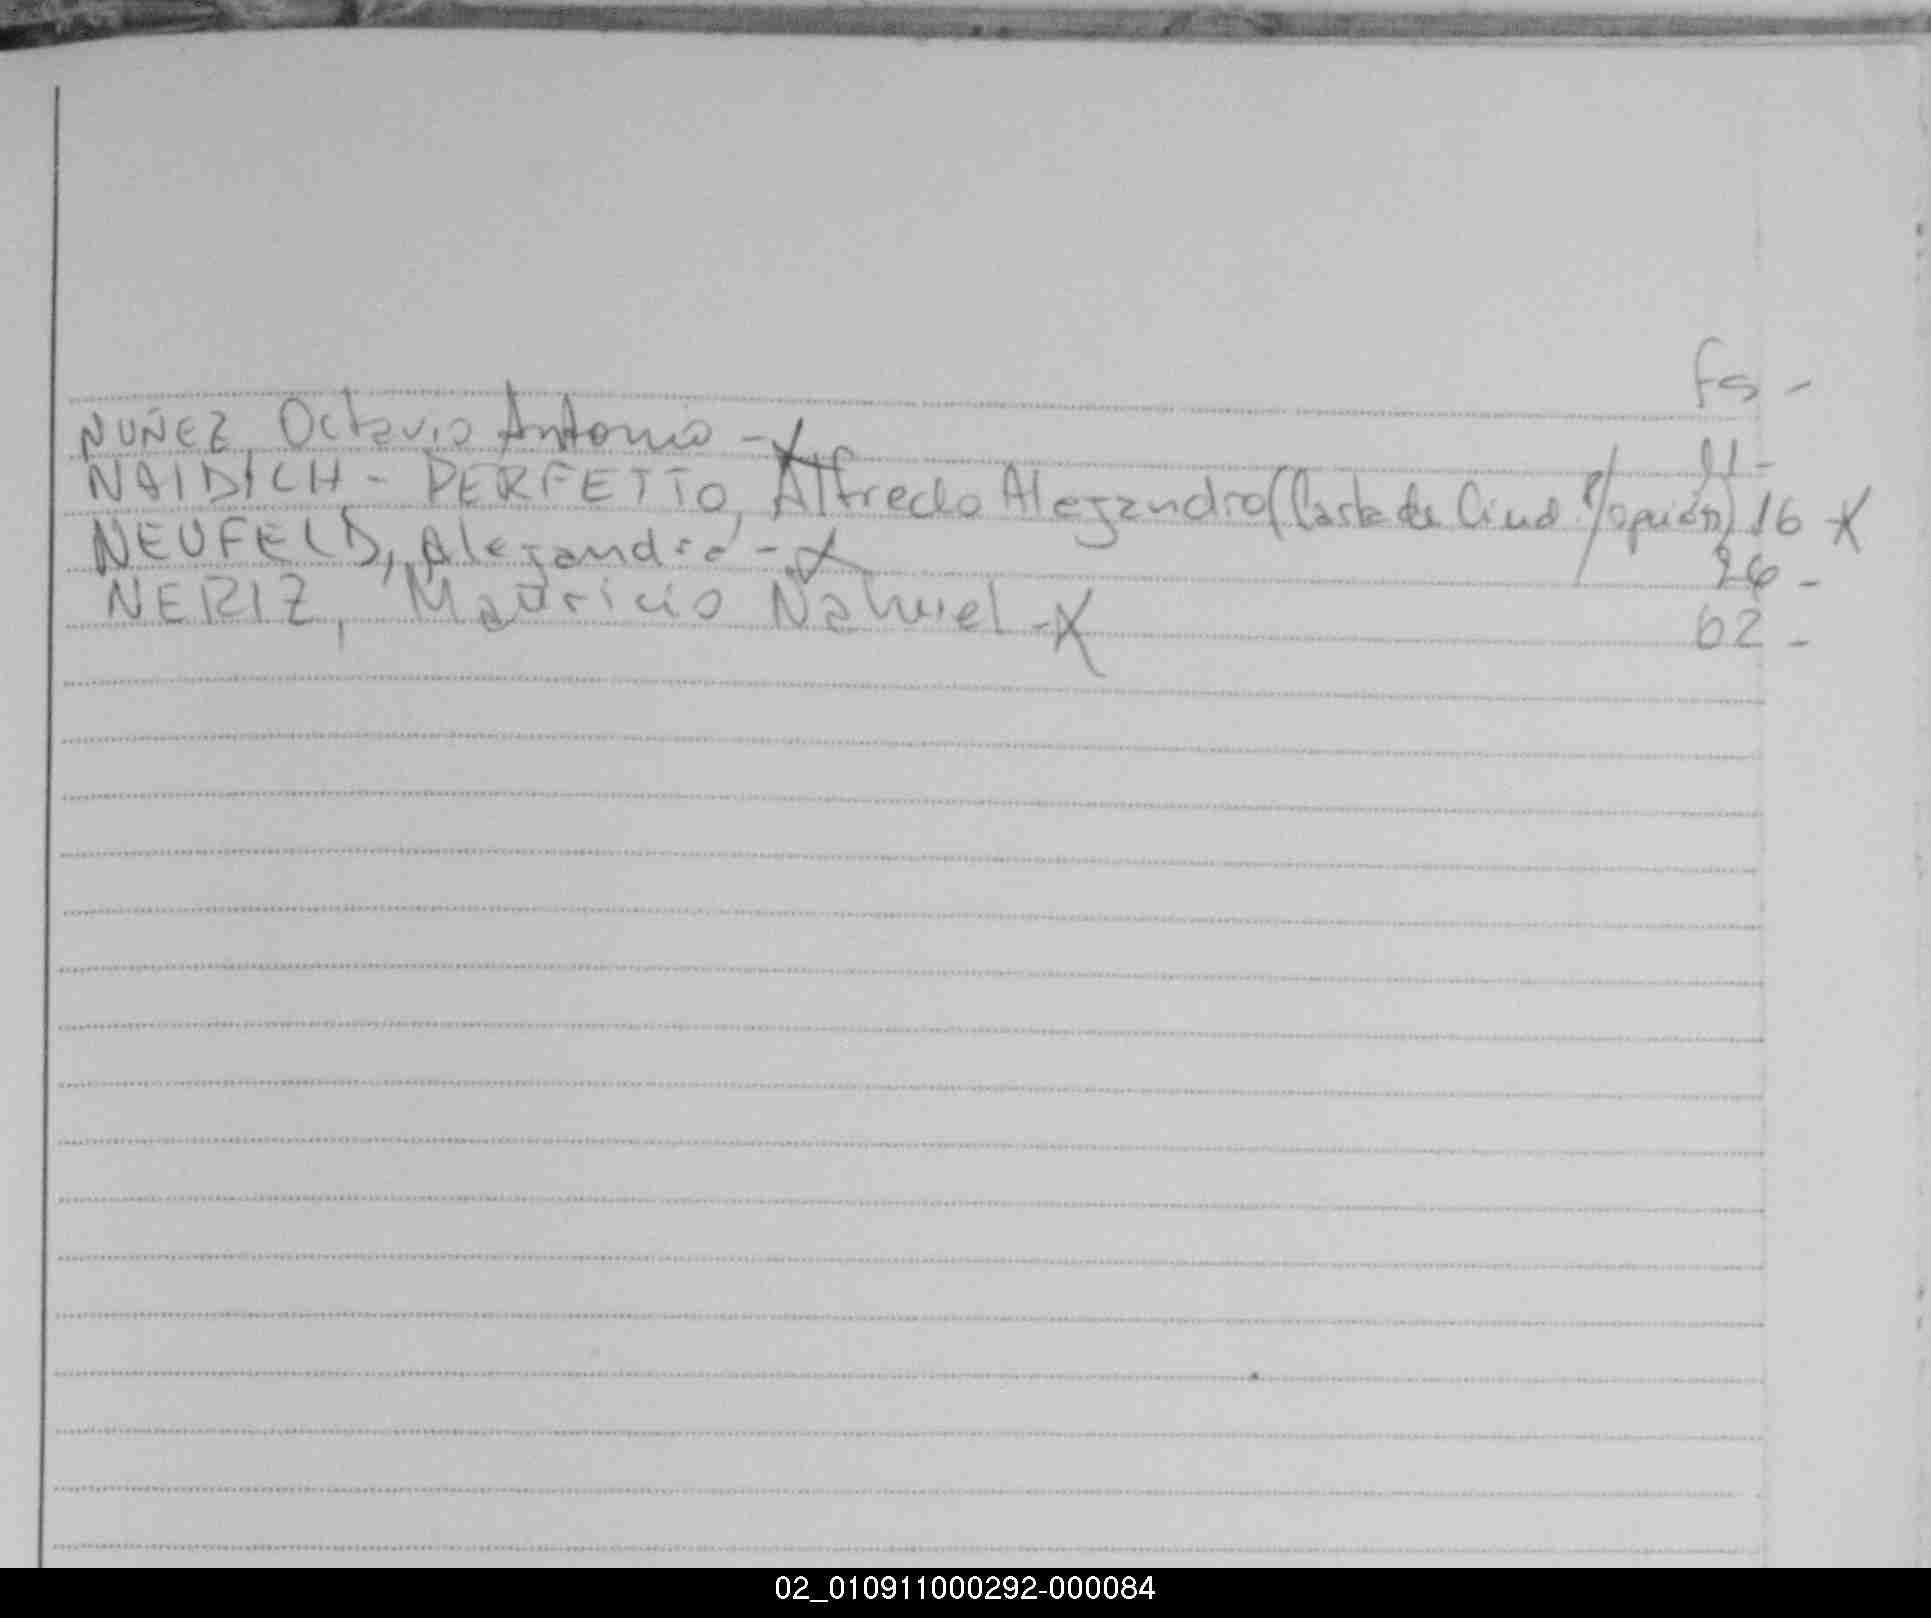 Fs -
NUÑEZ, Octavio Antonio - X 11 -
NAIDICH - PERFETTO, Alfredo Alejandro (Carta de Ciud. P/opción) 16 X
NEUFELD, Alejandro - X 26 -
NERIZ, Mauricio Nahuel - X 62 -
02_010911000292-000084